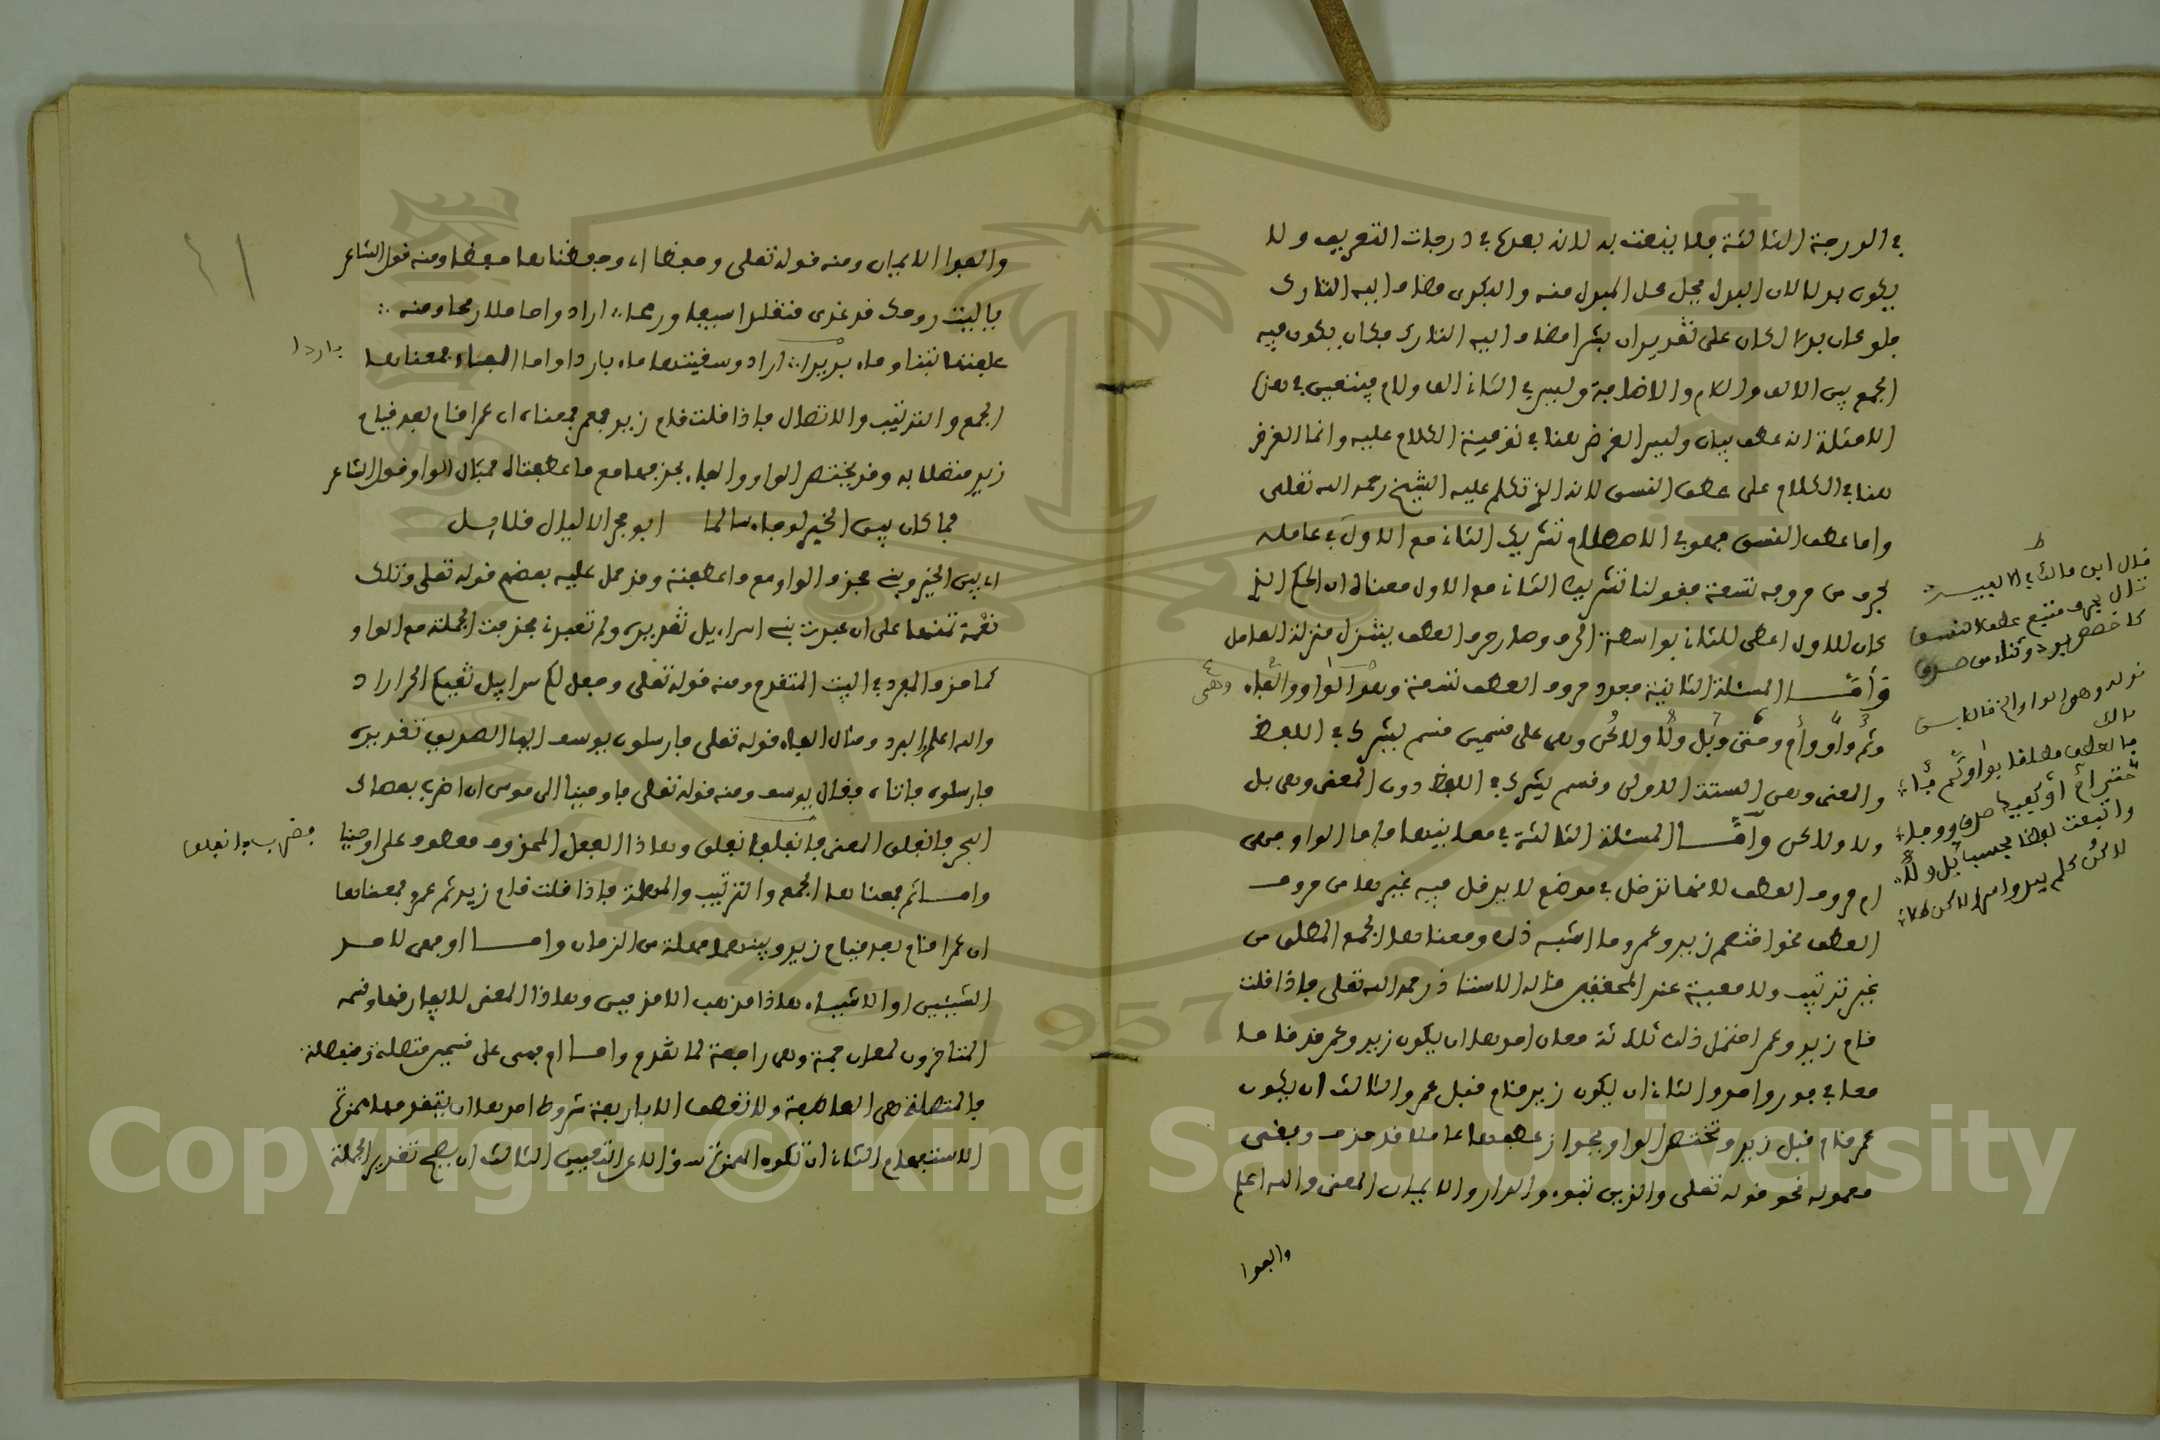 في الدرجة الثالثة فلا ينعت به لانه بعدها في درجات التعريف ولا
يكون بدلا لان البدل يحل محل المبدل منه والبكري مضاف اليه التارك
فلو كان بدلا لكان على تقدير ان بشرا مضاف اليه التارك فكان يكون فيه
الجمع بين الالف واللام والاضافة وليس في الثاني الف ولام فيتعين في هذه
الامثلة انه عطف بيان وليس الغرض هنا في توفية الكلام عليه وانما الغرض
هنا في الكلام على عطف النسق لانه الذي تكلم عليه الشيخ رحمه الله تعلى
واما عطف النسق فهو في الاصطلاح تشريك الثاني مع الاول في عامله
بحرف من حروفه تسعة فقولنا تشريك الثاني مع الاول معناه ان الحكم الذي
كان للاول اعطي للثاني بواسطة الحرف وصار حرف العطف يتنزل منزلة العامل
وأمّا المسئلة الثانية فعدد حروف العطف تسعة وهي الواو والفاء
وثم وأو وأم وحتى وبل ولا ولاكن وهي على قسمين قسم يشرك في اللفظ
والمعنى وهي الستة الاولى وقسم يشرك في اللفظ دون المعنى وهي بل
ولا ولاكن وأمّا المسئلة الثالثة في معانيها فاما الواو فهي
ام حروف العطف لانها تدخل في موضع لا يدخل فيه غيرها من حروف
العطف نحو اختصم زيد وعمرو وما اشبه ذلك ومعناها الجمع المطلق من
غير ترتيب ولا معية عند المحققين قاله الاستاذ رحمه الله تعلى فاذا قلت
قام زيد وعمرو احتمل ذلك ثلاثة معان احدها ان يكون زيد وعمرو قد قاما
معا في فور واحد والثاني ان يكون زيد قام قبل عمرو والثالث ان يكون
عمرو قام قبل زيد وتختص الواو بجواز عطفها عاملا قد حذف وبقي
معموله نحو قوله تعلى والذين تبوءوا الدار والايمان المعنى والله اعلم
والفوا
وهي
قال ابن مالك في الالفية
تال بحرف متبع عطف النسق
كاخصص بود وثناء من صدق
قوله وهي الواو الخ قال ابن
مالك
فالعطف مطلقا بواو ثم فا
حتى أم أو كفيك صدق ووفا
واتبعت لفظا فحسب بل ولا
لاكن كلم يبد وامرؤ لاكن طلا
٤١
والفوا الايمان ومنه قوله تعلى وحفظا اي وحفظناها حفظا ومنه قول الشاعر
يا ليت زوجك قد غدى متقلدا سيفا ورمحا اراد وحاملا رمحا ومنه
علفتها تبنا وماء باردا اراد وسقيتها ماء باردا واما الفاء فمعناها
باردا
الجمع والترتيب والاتصال فاذا قلت قام زيد فعمرو فمعناه ان عمرا قام بعد قيام
زيد متصلا به وقد يختص الواو والفاء بحذفهما مع ما عطفتاه فمثال الواو قول الشاعر
فما كان بين الخير لو جاء سالما ابو حجر الا ليال قلايل
اي بين الخير وبيني فحذف الواو مع ما عطفته وقد حمل عليه بعضهم قوله تعلى وتلك
نعمة تمنها علي ان عبدت بني اسراءيل تقديره ولم تعبدني فحذفت الجملة مع الواو
كما حذف المفرد في البيت المتقدم ومنه قوله تعلى وجعل لكم سرابيل تقيكم الحر اراد
والله اعلم والبرد ومثال الفاء قوله تعلى فارسلون يوسف ايها الصديق تقديره
فارسلوه فاتاه فقال يوسف ومنه قوله تعلى فاوحينا الى موسى ان اضرب بعصاك
البحر فانفلق المعنى فانفلق وهذا الفعل المحذوف معطوف على اوحينا
فضرب فانفلق
وامّا ثم فمعناها الجمع والترتيب والمهلة فاذا قلت قام زيد ثم عمرو فمعناها
ان عمرا قام بعد قيام زيد وبينهما مهلة من الزمان وامّا او فهي لاحد
الشيئين او الاشياء هذا مذهب الاقدمين وهذا المعنى لا يفارقها وقسمه
المتاخرون لمعان جمة وهي راجعة لما تقدم وامّا ام فهي على قسمين متصلة ومنفصلة
فالمتصلة هي العاطفة ولا تعطف الا باربعة شروط احدها ان يتقدمها همزة
الاستفهام الثاني ان تكون الهمزة سؤالا عن التعيين الثالث ان يصح تقدير الجملة
1957
Copyright © King Saud University